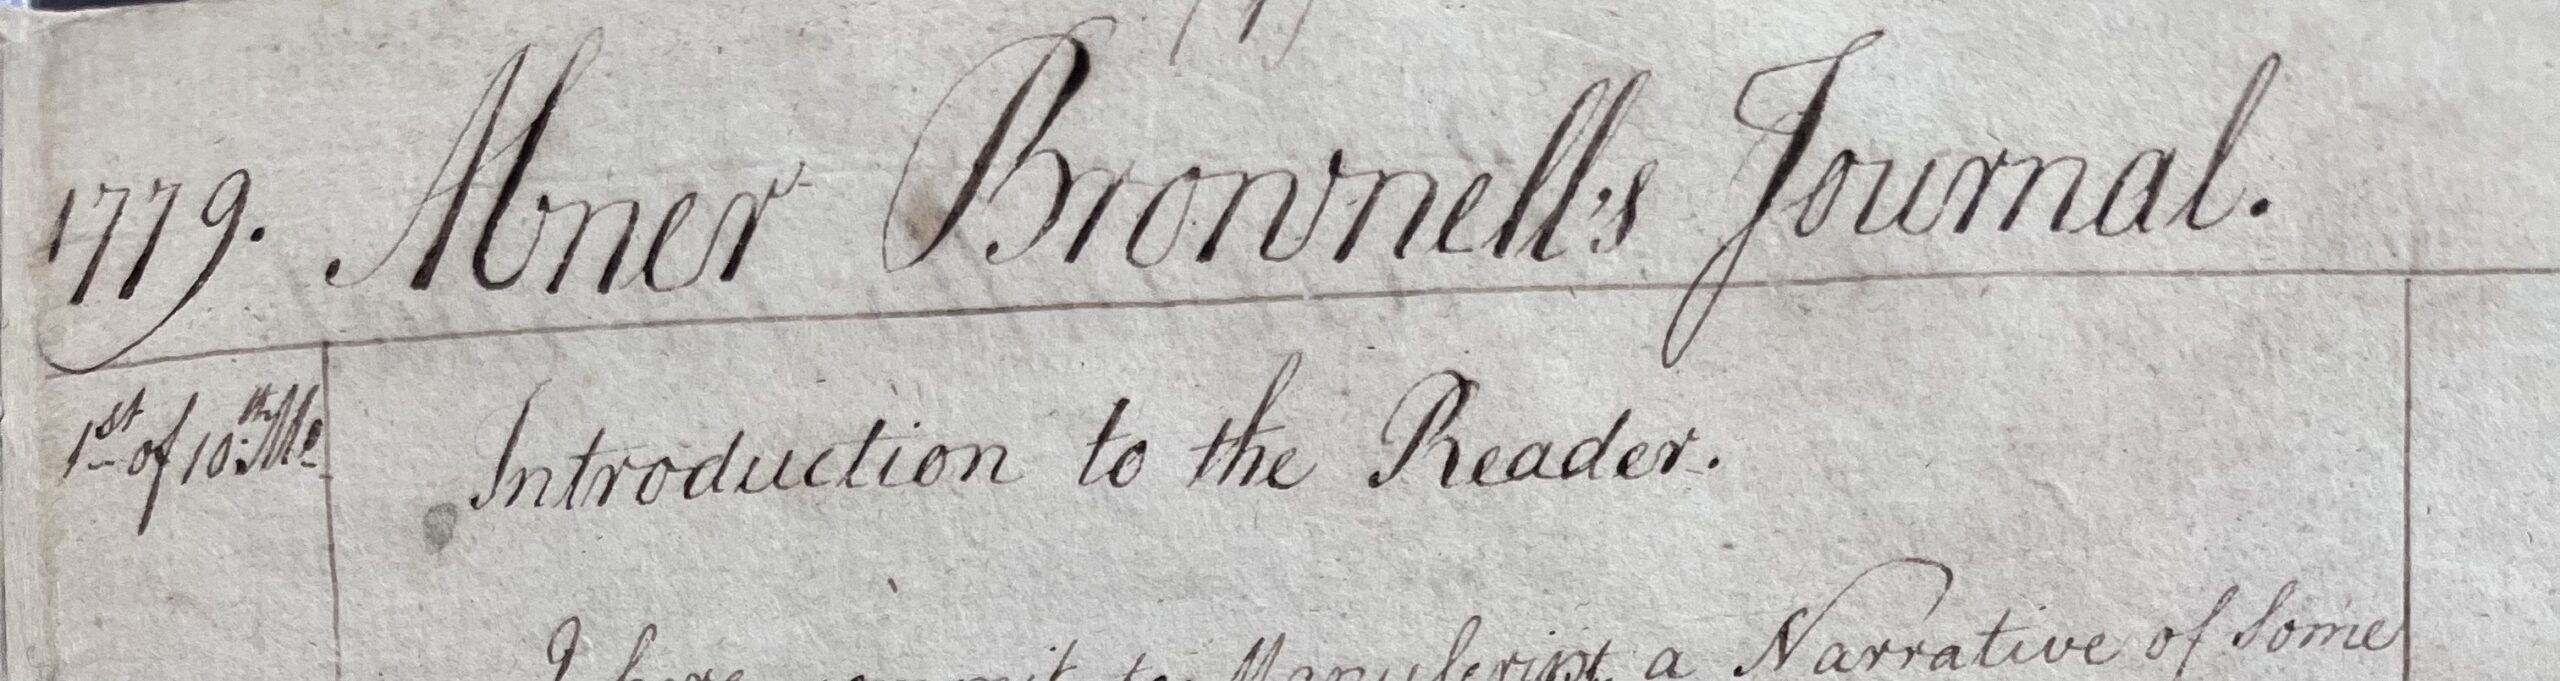 (1)
1779. Abner Brownell's Journal.
1st of 10th Mo
Introduction to the Reader.
I here commit to Manuscript a Narrative of Some